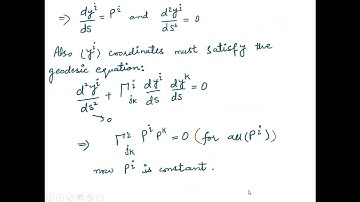 ⇒ dy^i/ds = p^i and d²y^i/ds² = 0
Also (y^i) coordinates must satisfy the
geodesic equation:
d²y^i/ds² + Γ^i_jk dy^j/ds dy^k/ds = 0
→ 0
⇒ Γ^i_jk p^j p^k = 0 (for all (p^i))
now p^i is constant.